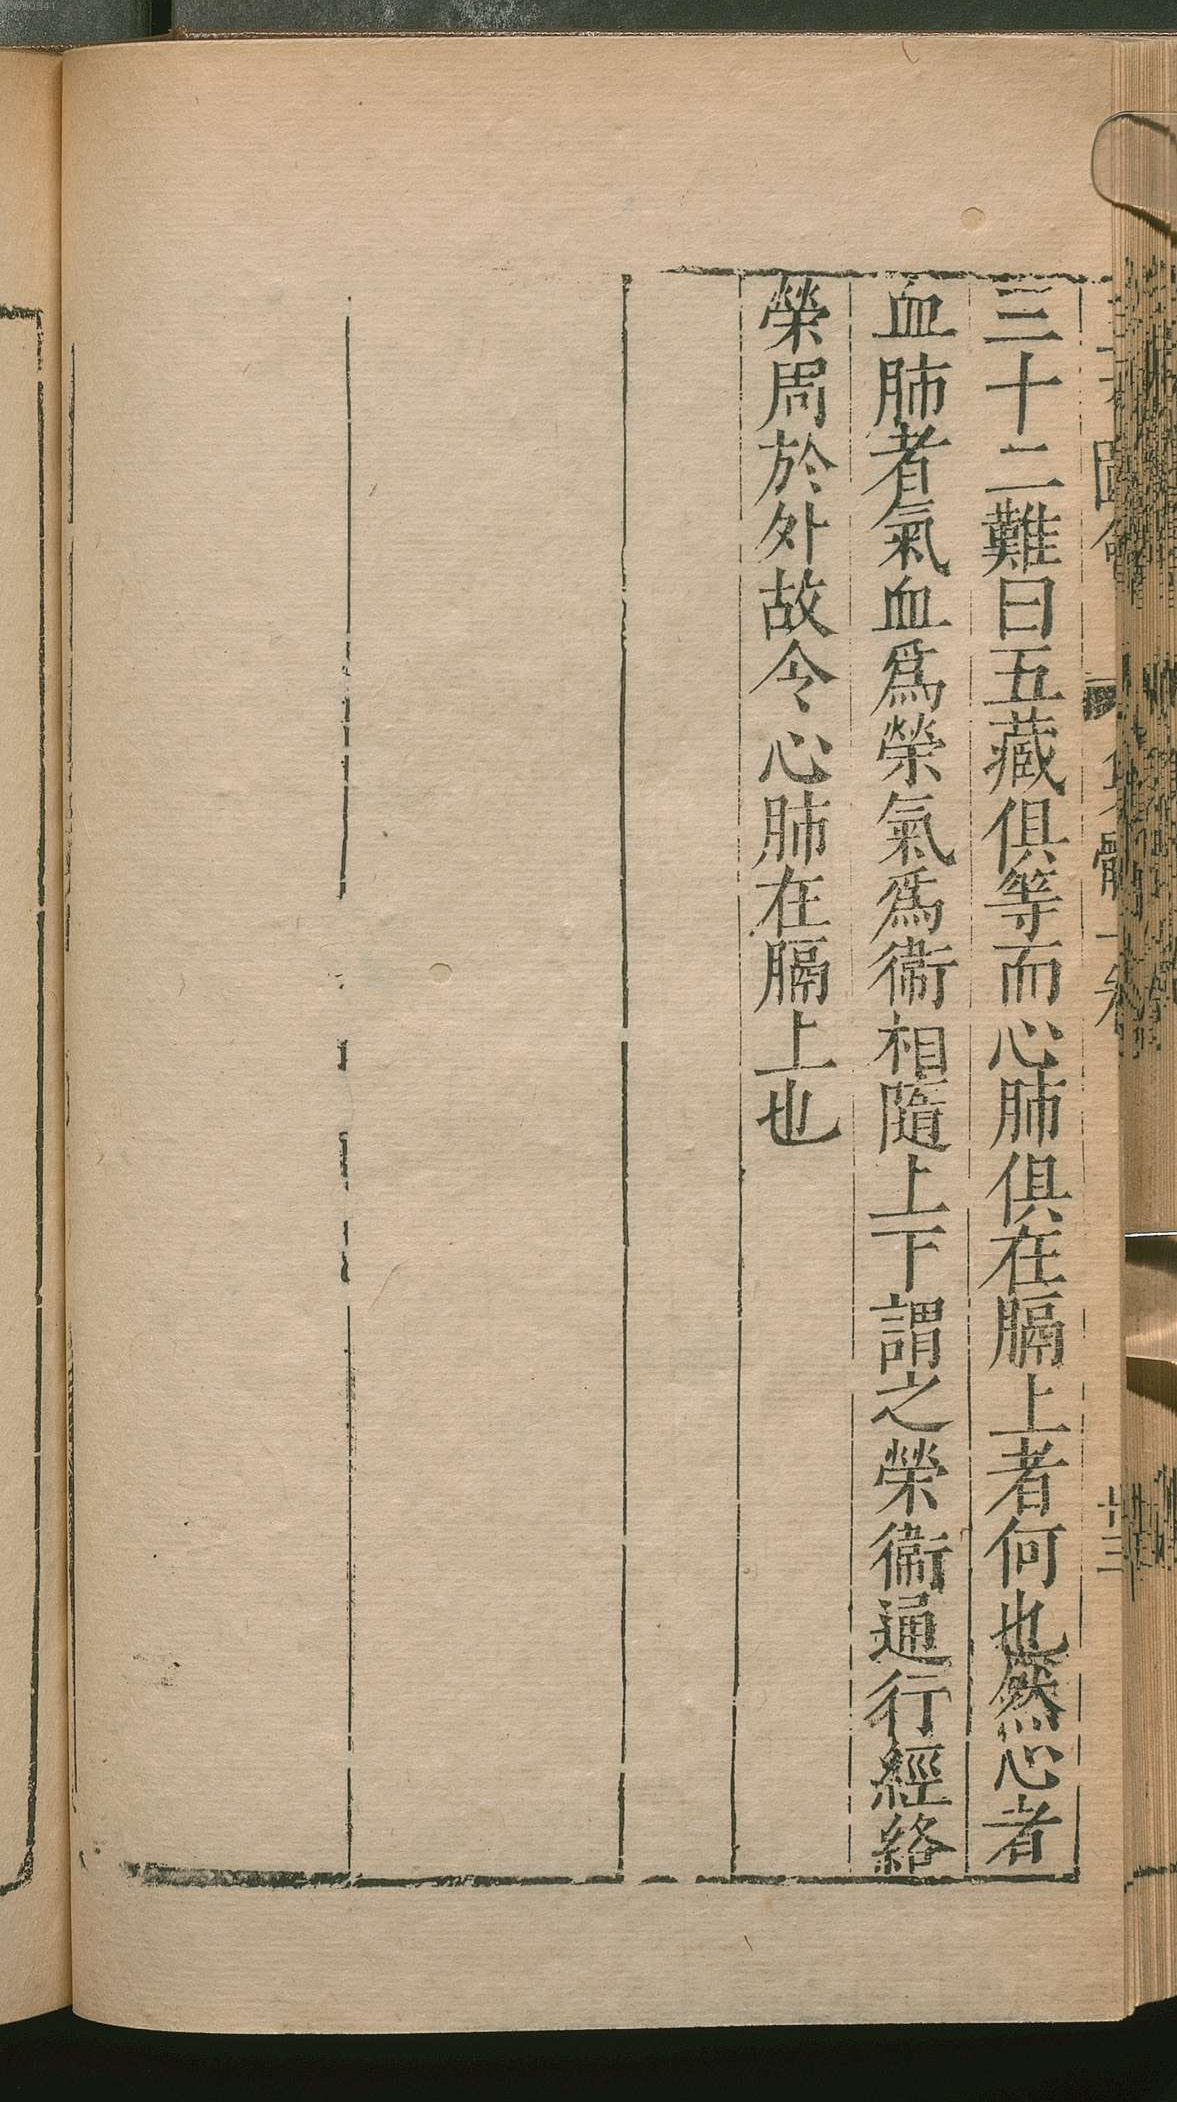 三十二難曰五藏俱等而心肺俱在膈上者何也然心者
血肺者氣血爲榮氣爲衞相隨上下謂之榮衞通行經絡
榮周於外故令心肺在膈上也